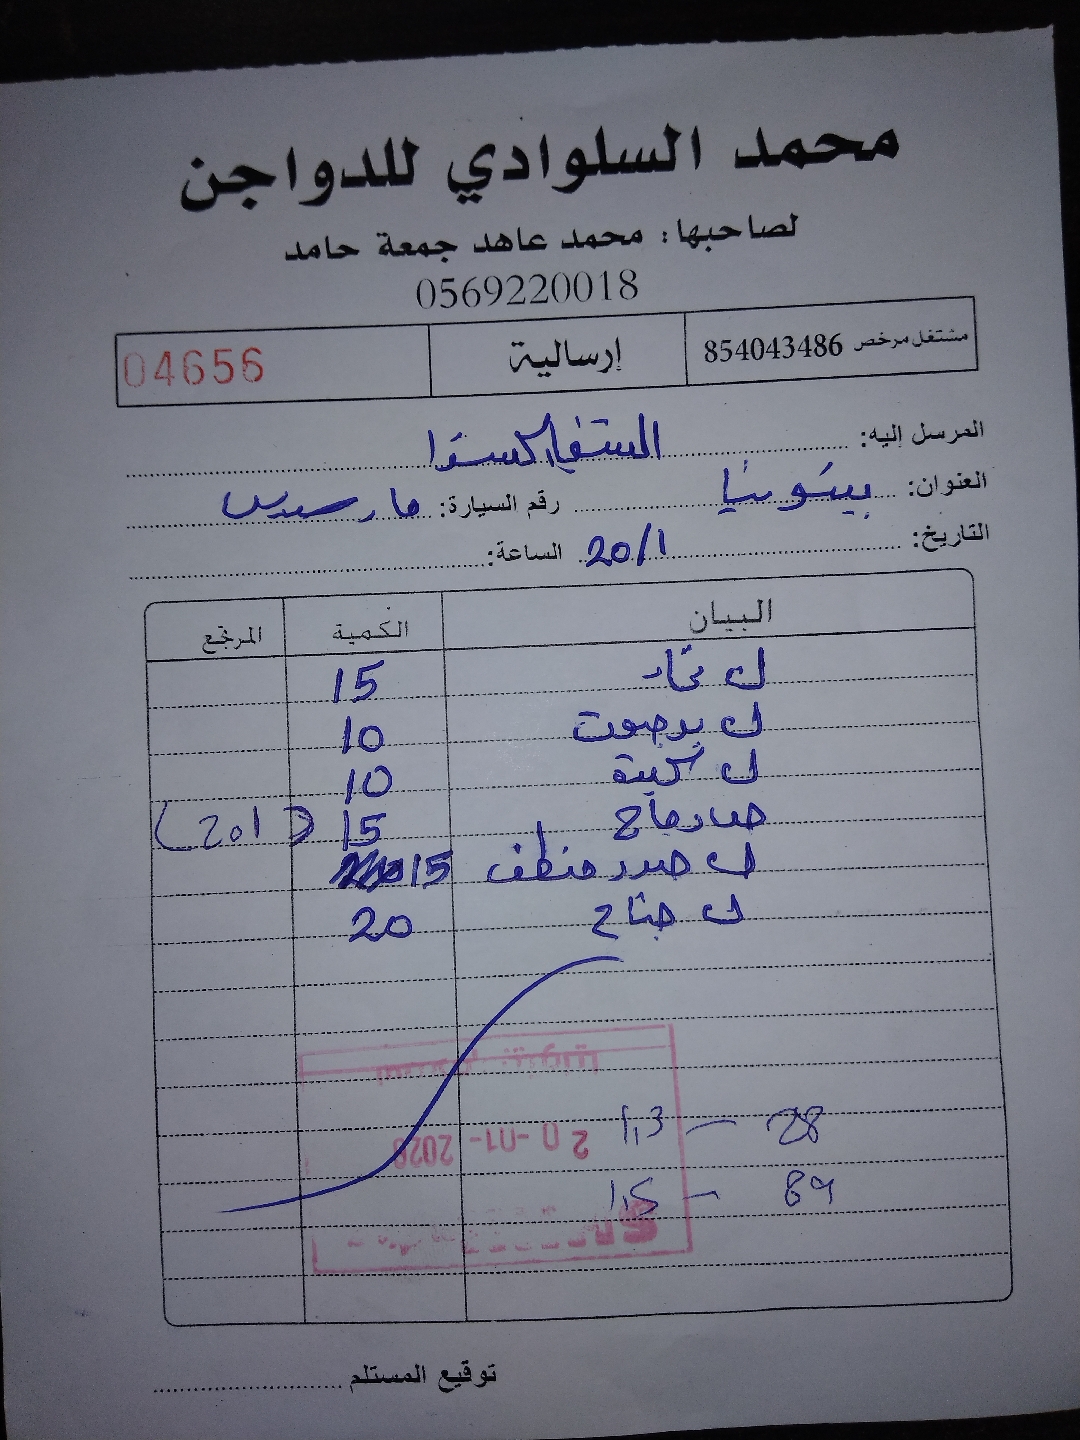 محمد السلوادي للدواجن
لصاحبها: محمد عاهد جمعة حامد
0569220018
مشتغل مرخص 854043486 إرسالية 04656
المرسل إليه:
العنوان: بيتونيا رقم السيارة:
التاريخ: 20/1 الساعة:
البيان الكمية المرتجع
ك 15
ك 10
ك 10
15 (201)
ك صدر منظف 15
ك جناح 20
20-01-2026
28 — 1,3
89 — 1,5
توقيع المستلم